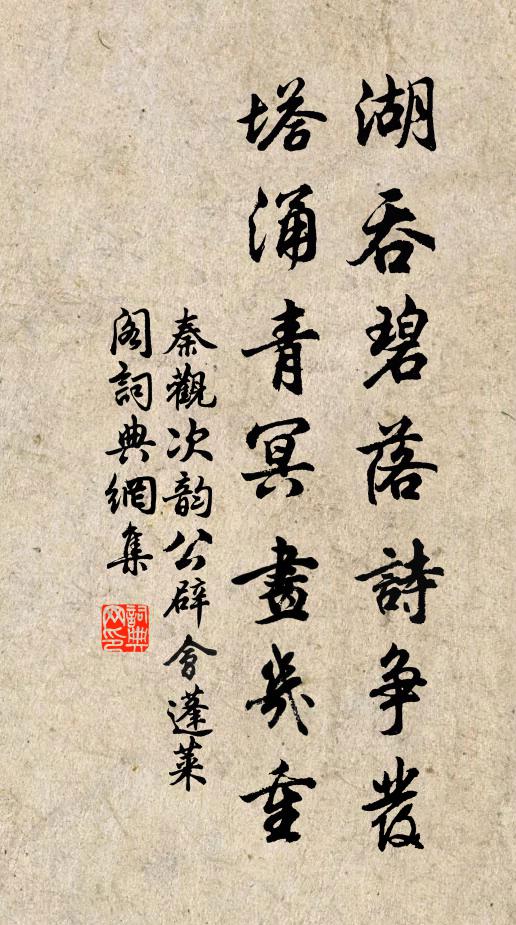 湖吞碧落詩争發
塔涌青冥畫幾重
秦觀次韵公辟會蓬萊
阁詞典網集
詞典网印